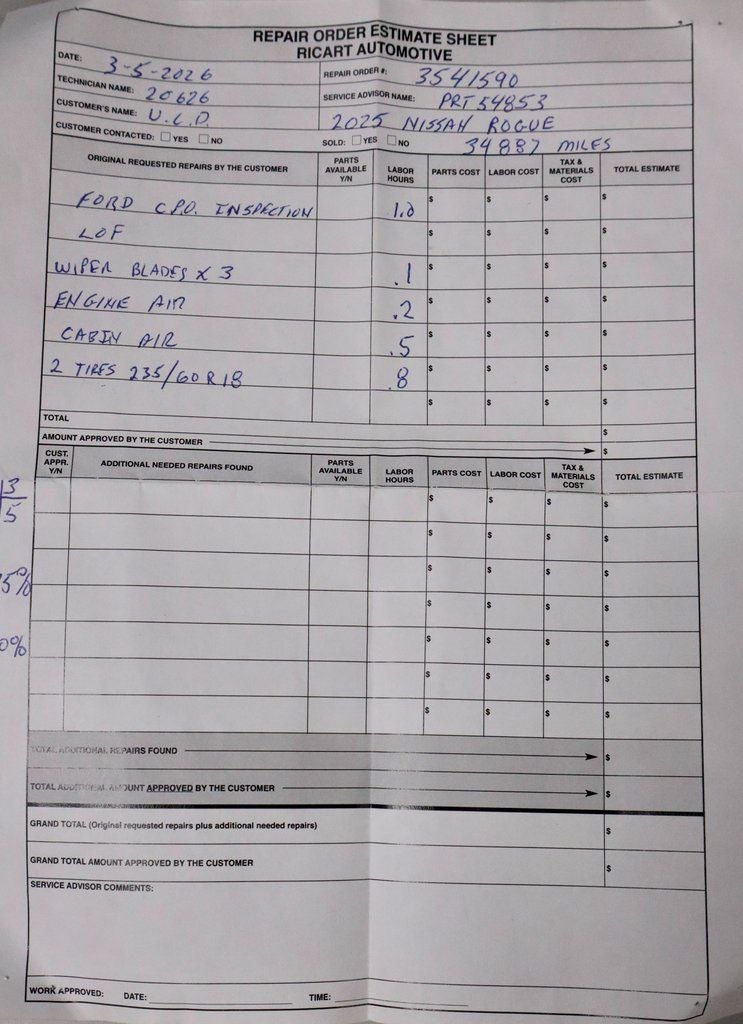 REPAIR ORDER ESTIMATE SHEET
RICART AUTOMOTIVE
DATE: 3-5-2026 REPAIR ORDER #: 3541590
TECHNICIAN NAME: 20626 SERVICE ADVISOR NAME: PRT 54853
CUSTOMER'S NAME: U.C.D. 2025 NISSAN ROGUE
CUSTOMER CONTACTED: ☐ YES ☐ NO SOLD: ☐ YES ☐ NO 34887 MILES
ORIGINAL REQUESTED REPAIRS BY THE CUSTOMER PARTS AVAILABLE Y/N LABOR HOURS PARTS COST LABOR COST TAX & MATERIALS COST TOTAL ESTIMATE
FORD C.P.O. INSPECTION 1.0 $ $ $ $
LOF $ $ $ $
WIPER BLADES X 3 .1 $ $ $ $
ENGINE AIR .2 $ $ $ $
CABIN AIR .5 $ $ $ $
2 TIRES 235/60R18 .8 $ $ $ $
$ $ $ $
TOTAL $
AMOUNT APPROVED BY THE CUSTOMER $
CUST. APPR. Y/N ADDITIONAL NEEDED REPAIRS FOUND PARTS AVAILABLE Y/N LABOR HOURS PARTS COST LABOR COST TAX & MATERIALS COST TOTAL ESTIMATE
3 $ $ $ $
5 $ $ $ $
5% $ $ $ $
0% $ $ $ $
$ $ $ $
$ $ $ $
$ $ $ $
TOTAL ADDITIONAL REPAIRS FOUND $
TOTAL ADDITIONAL AMOUNT APPROVED BY THE CUSTOMER $
GRAND TOTAL (Original requested repairs plus additional needed repairs) $
GRAND TOTAL AMOUNT APPROVED BY THE CUSTOMER $
SERVICE ADVISOR COMMENTS:
WORK APPROVED: DATE: TIME: